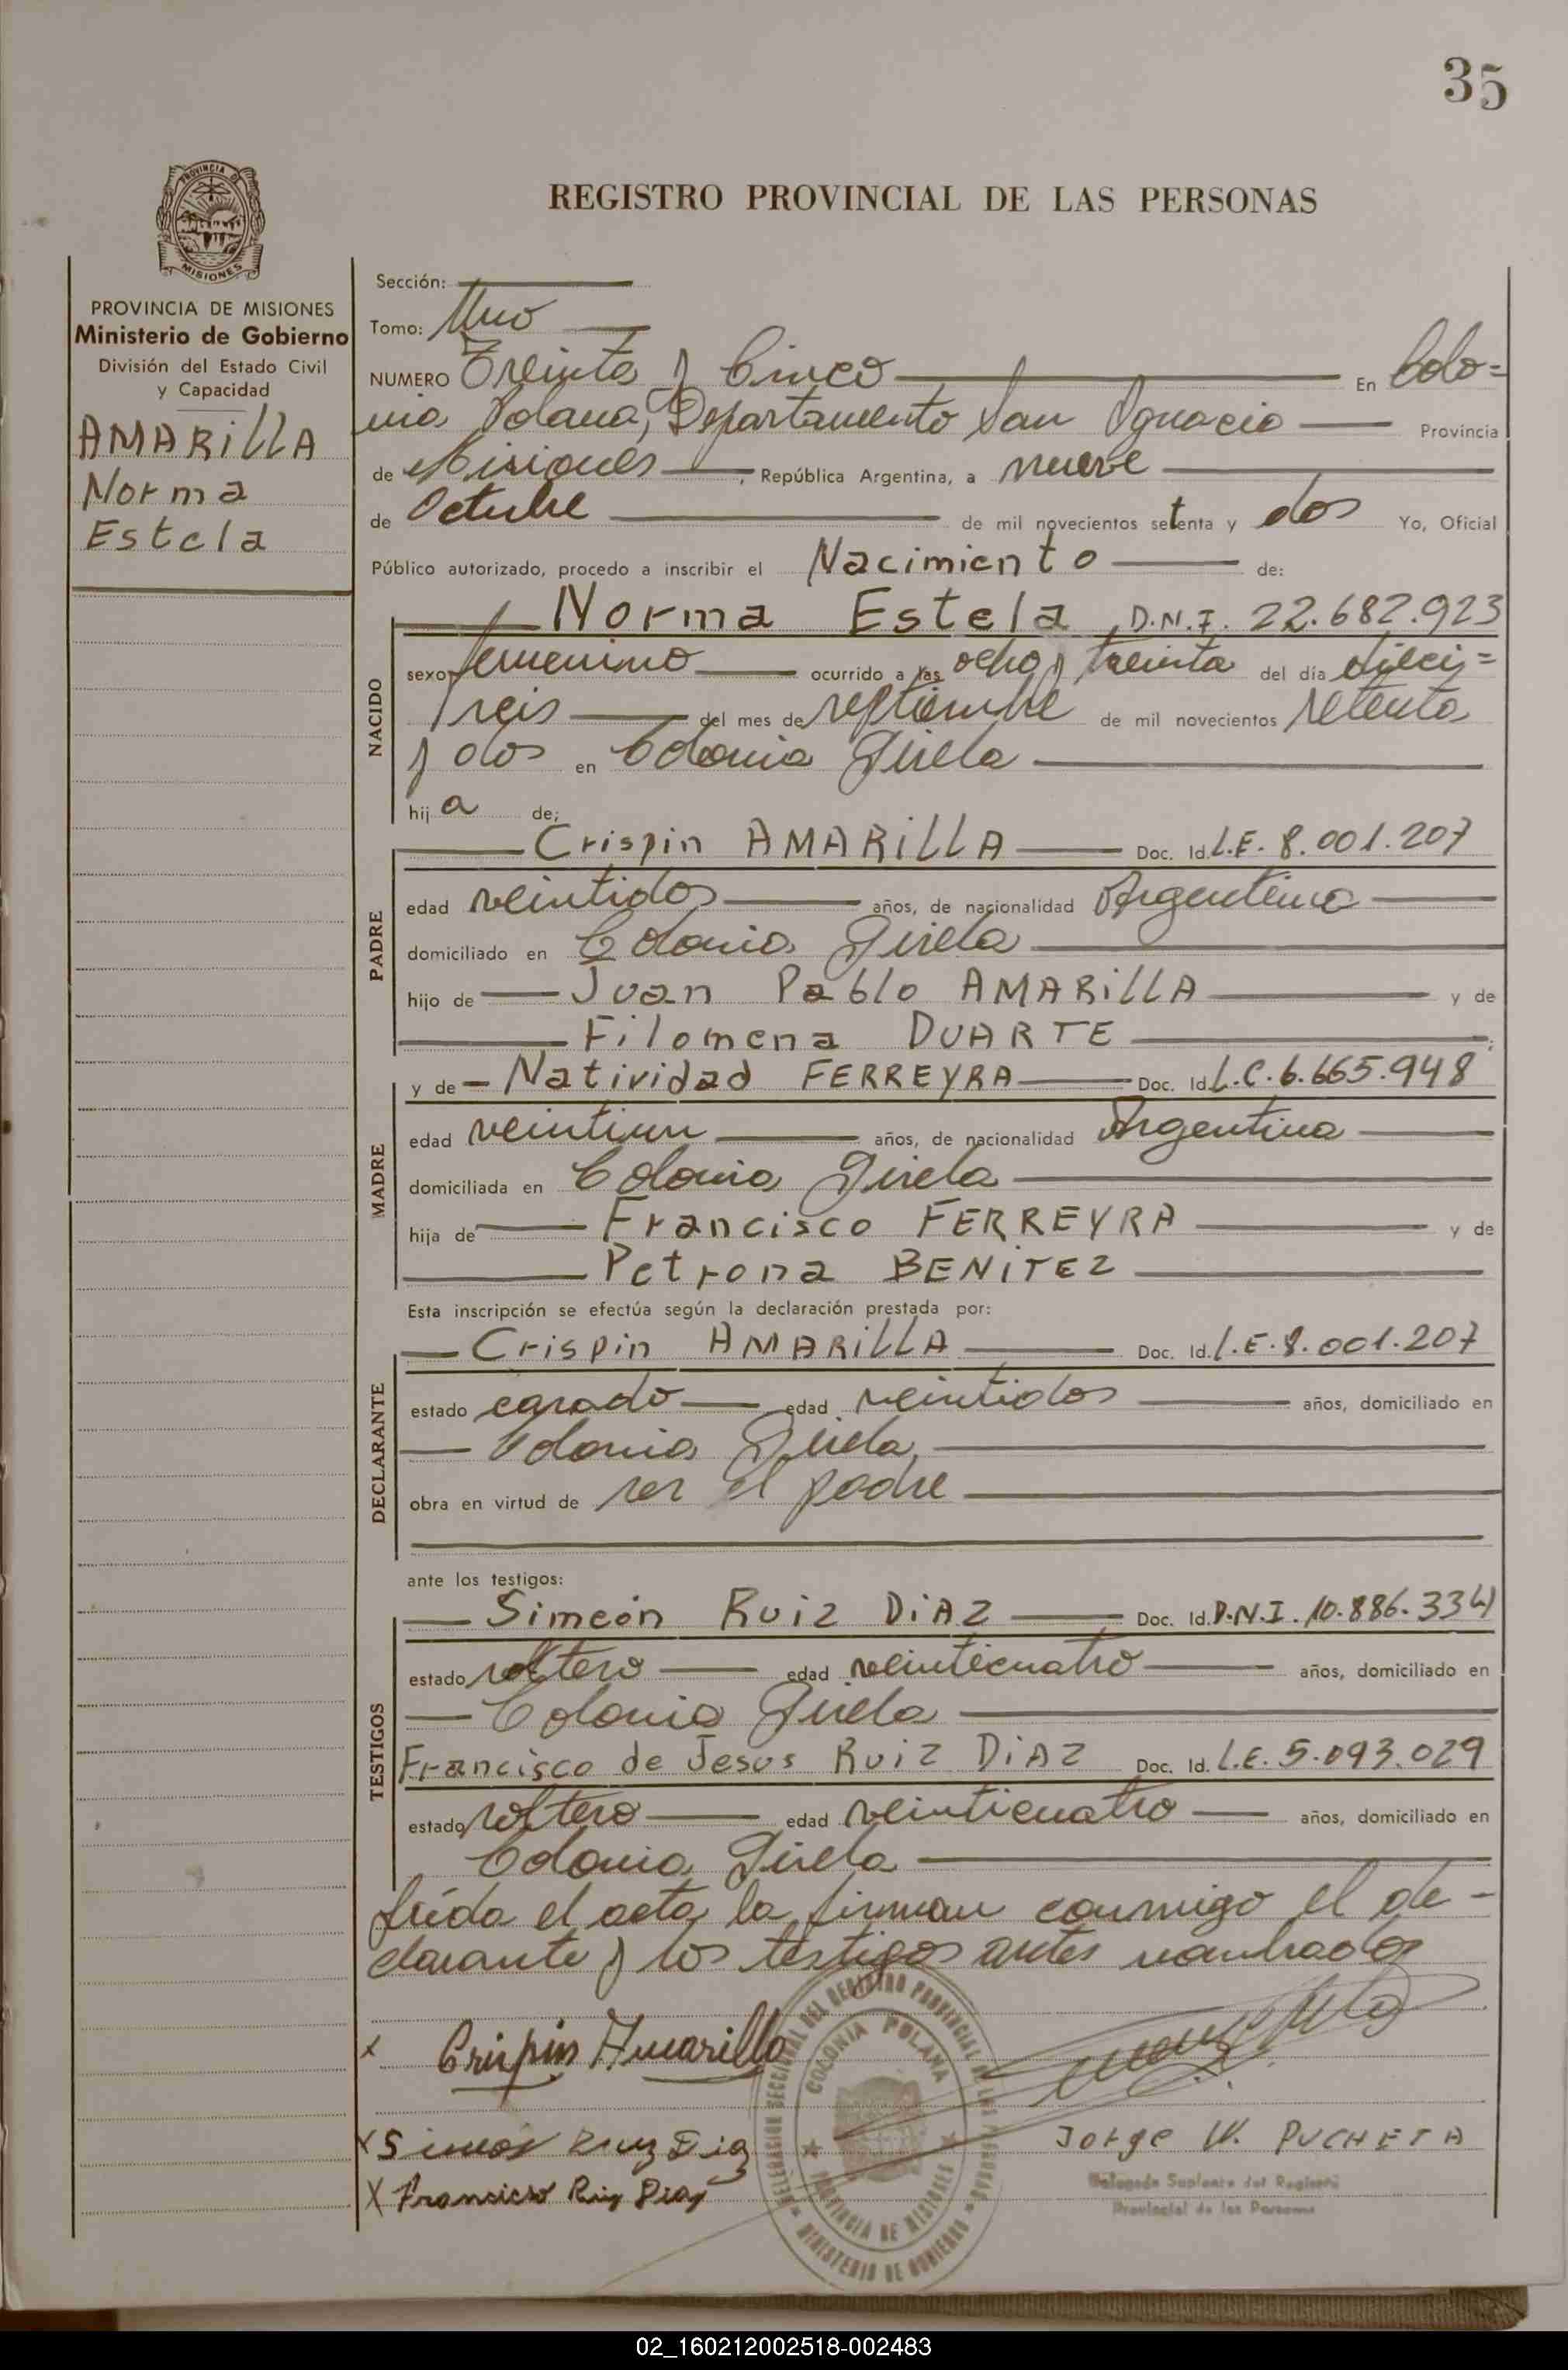 35
PROVINCIA DE
MISIONES
REGISTRO PROVINCIAL DE LAS PERSONAS
PROVINCIA DE MISIONES
Ministerio de Gobierno
División del Estado Civil
y Capacidad
AMARILLA
Norma
Estela
Sección:
Tomo: Uno
NUMERO Treinta y Cinco En Colo=
nia Polana, Departamento San Ignacio Provincia
de Misiones, República Argentina, a nueve
de Octubre de mil novecientos setenta y dos Yo, Oficial
Público autorizado, procedo a inscribir el Nacimiento de:
NACIDO
Norma Estela, D.N.I. 22.682.923
sexo femenino ocurrido a las ocho y treinta del día dieci=
seis del mes de septiembre de mil novecientos setenta
y dos en Colonia Gisela
hija de;
PADRE
Crispin AMARILLA Doc. Id. L.E. 8.001.207
edad veintidos años, de nacionalidad Argentina
domiciliado en Colonia Gisela
hijo de Juan Pablo AMARILLA y de
Filomena DUARTE;
MADRE
y de Natividad FERREYRA Doc. Id. L.C. 6.665.948
edad veintiun años, de nacionalidad Argentina
domiciliada en Colonia Gisela
hija de Francisco FERREYRA y de
Petrona BENITEZ
Esta inscripción se efectúa según la declaración prestada por:
DECLARANTE
Crispin AMARILLA Doc. Id. L.E. 8.001.207
estado casado edad veintidos años, domiciliado en
Colonia Gisela,
obra en virtud de ser el padre
ante los testigos:
TESTIGOS
Simeón Ruiz DIAZ Doc. Id. D.N.I. 10.886.334
estado soltero edad veinticuatro años, domiciliado en
Colonia Gisela
Francisco de Jesus Ruiz DIAZ Doc. Id. L.E. 5.093.029
estado soltero edad veinticuatro años, domiciliado en
Colonia Gisela
Leída el acta, la firman conmigo el de-
clarante y los testigos antes nombrados
x Crispin Amarilla
X Simeon Ruiz Diaz
X Francisco Ruiz Diaz
DELEGACION SECCIONAL DEL REGISTRO PROVINCIAL DE LAS PERSONAS
COLONIA POLANA
PROVINCIA DE MISIONES
MINISTERIO DE GOBIERNO
Jorge W. PUCHETA
Delegado Suplente del Registro
Provincial de las Personas
02_160212002518-002483